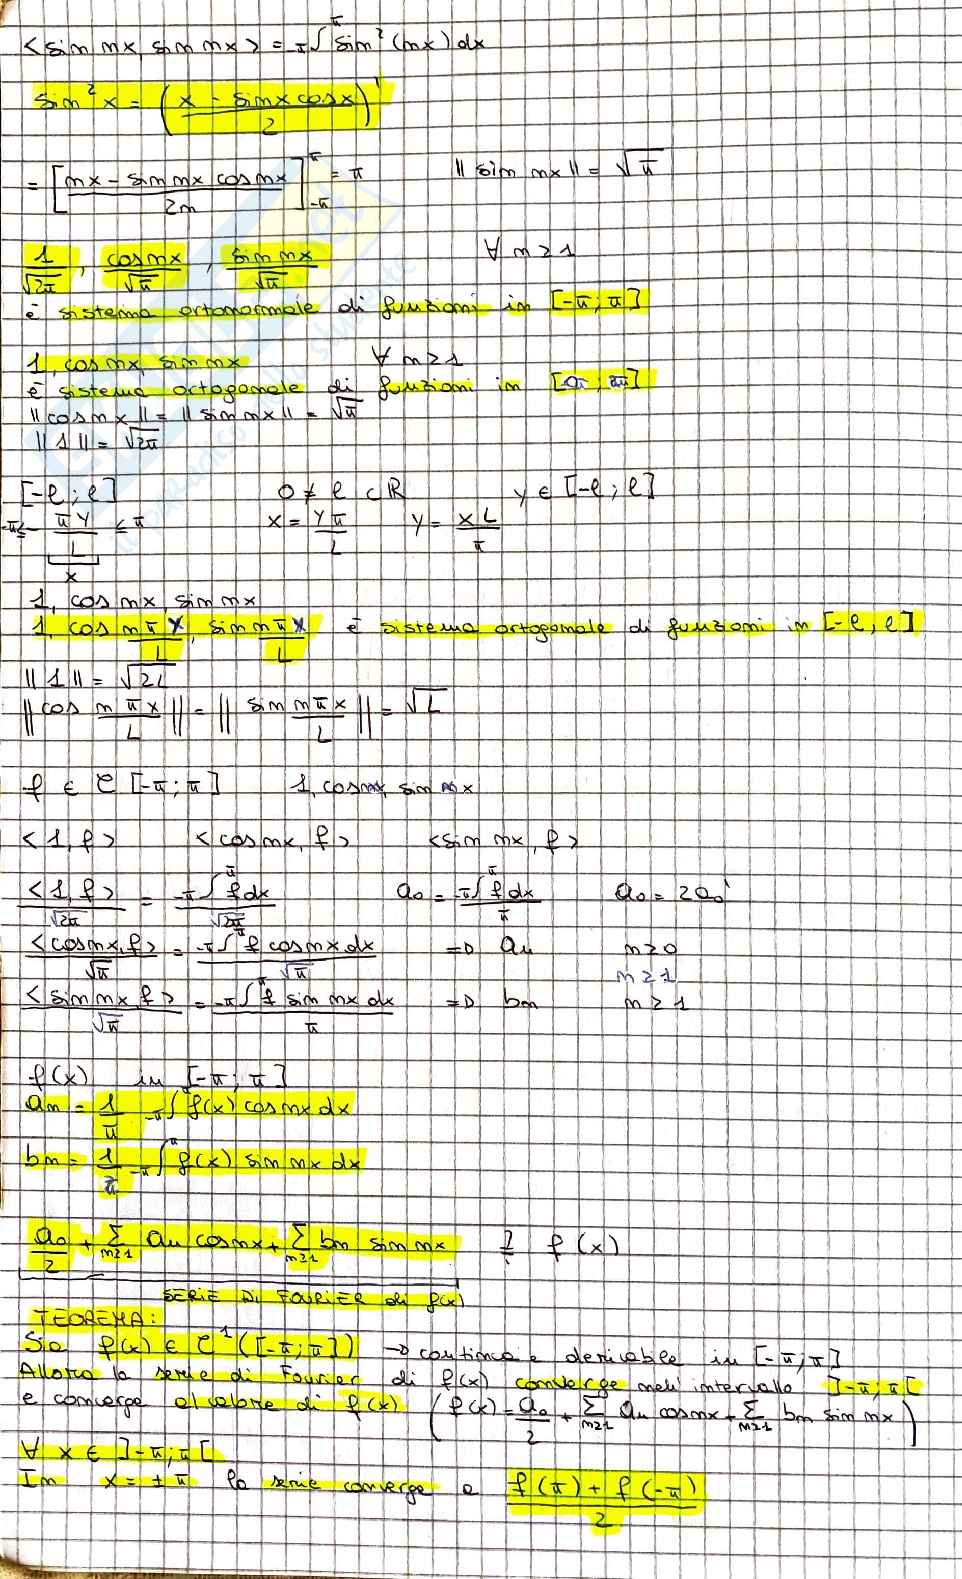 <sin nx, sin nx> = -π∫π sin² (nx) dx
sin² x = ( (x - sinx cosx) / 2 )'
= [ (nx - sin nx cos nx) / 2n ]π-π = π ‖ sin nx ‖ = √π
1/√2π , cos nx/√π , sin nx/√π ∀ n ≥ 1
è sistema ortonormale di funzioni in [-π; π]
1, cos nx, sin nx ∀ n ≥ 1
è sistema ortogonale di funzioni in [0π; 2π]
‖cos nx‖ = ‖sin nx‖ = √π
‖1‖ = √2π
[-l; l] 0 ≠ l ⊂ R y ∈ [-l; l]
-π ≤ πy/L ≤ π x = yπ/L y = xL/π
x
1, cos nx, sin nx
1, cos nπx/L , sin nπx/L è sistema ortogonale di funzioni in [-l, l]
‖1‖ = √2L
‖cos nπx/L‖ = ‖sin nπx/L‖ = √L
f ∈ C [-π; π] 1, cos nx, sin nx
<1, f> <cos nx, f> <sin nx, f>
<1, f>/√2π = -π∫π f dx/√2π a₀ = -π∫π f dx/π a₀ = 2a₀'
<cos nx, f>/√π = -π∫π f cos nx dx/√π => an n ≥ 0
n ≥ 1
<sin nx, f>/√π = -π∫π f sin nx dx/π => bn n ≥ 1
f(x) in [-π; π]
an = 1/π -π∫π f(x) cos nx dx
bn = 1/π -π∫π f(x) sin nx dx
a₀/2 + Σn≥1 an cos nx + Σn≥1 bn sin nx ? f(x)
SERIE DI FOURIER di f(x)
TEOREMA:
Sia f(x) ∈ C¹([-π; π]) → continua e derivabile in [-π; π]
Allora la serie di Fourier di f(x) converge nell'intervallo ]-π; π[
e converge al valore di f(x) ( f(x) = a₀/2 + Σn≥1 an cos nx + Σn≥1 bn sin nx )
∀ x ∈ ]-π; π[
In x = ± π la serie converge a (f(π) + f(-π))/2